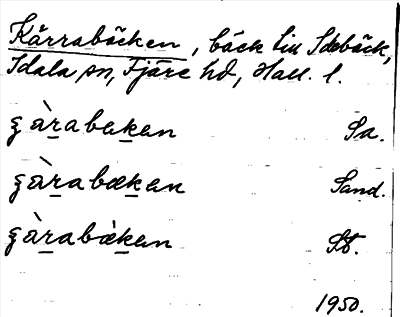 Kärrabäcken, bäck till Idebäck,
Idala sn, Fjäre hd, Hall. l.
gàrabekan Sa.
gàrabækan Sand.
gàrabækan St.
1950.